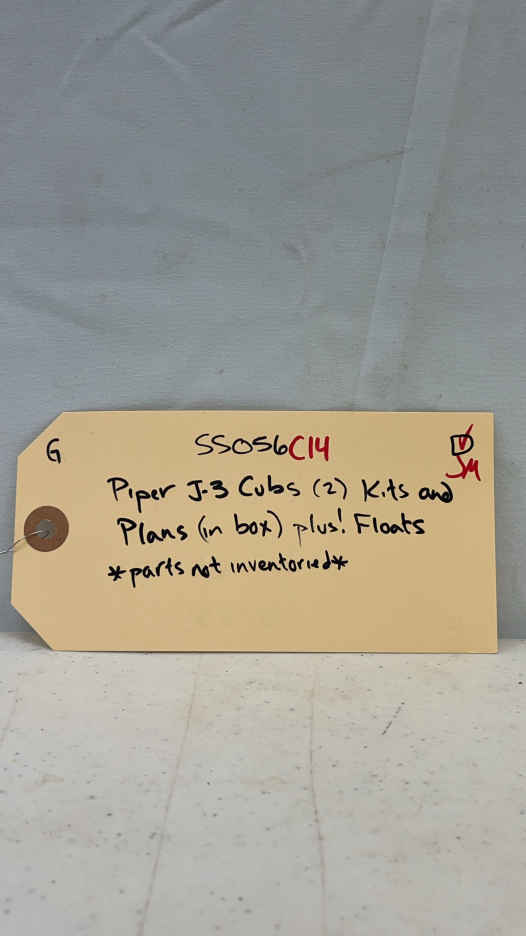 G SS056C14 D
SM
Piper J-3 Cubs (2) Kits and
Plans (in box) plus! Floats
*parts not inventoried*